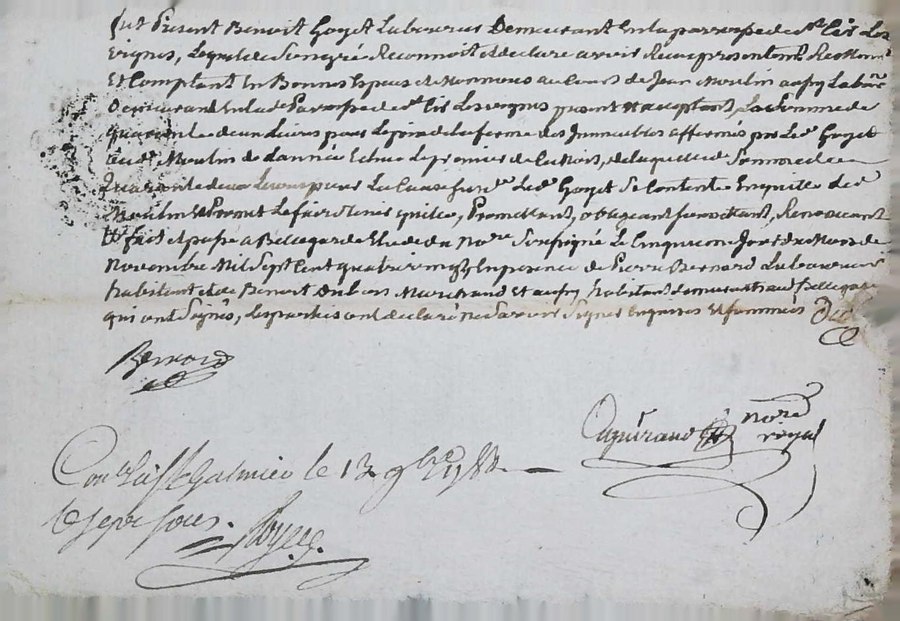 fut Présent Benoit Goyet Laboureur Demeurant En la parroisse de st Cir Les
Vignes, Lequel de Son gré Reconnoit et declare avoir Reçu presentement
Et Comptant En Bonnes Especes de Monnoyes au Cours de Jean Moulin aussy Lab.r
Demeurant En la de Parroisse de st Cir Les Vignes present et acceptant, La Somme de
quarante deux Livres pour Le prix de La ferme des Immeubles affermés par Led Goyet
aud Moulin de L'année Echue Le premier de Ce Mois, de laquelle de Somme de
Quarante deux Livres pour La Cause sus de Led Goyet Se Contente En quitte led
Moulin Et Promet Le faire tenir quitte, Promettant, obligeant, Renonçant
fait et passé a Bellegarde Etude du Nore Soussigné Le Cinquieme Jour du Mois de
Novembre Mil Sept Cent quatre En presence de Pierre Bernard Laboureur
habitant et de Benoit Marchand Et aussy habitant demeurant aud Bellegarde
qui ont Signés, Les parties ont declaré ne Savoir Signer Enquises Et sommées
Bernard
nore
royal
Con.lé à St Galmier le 13 9bre